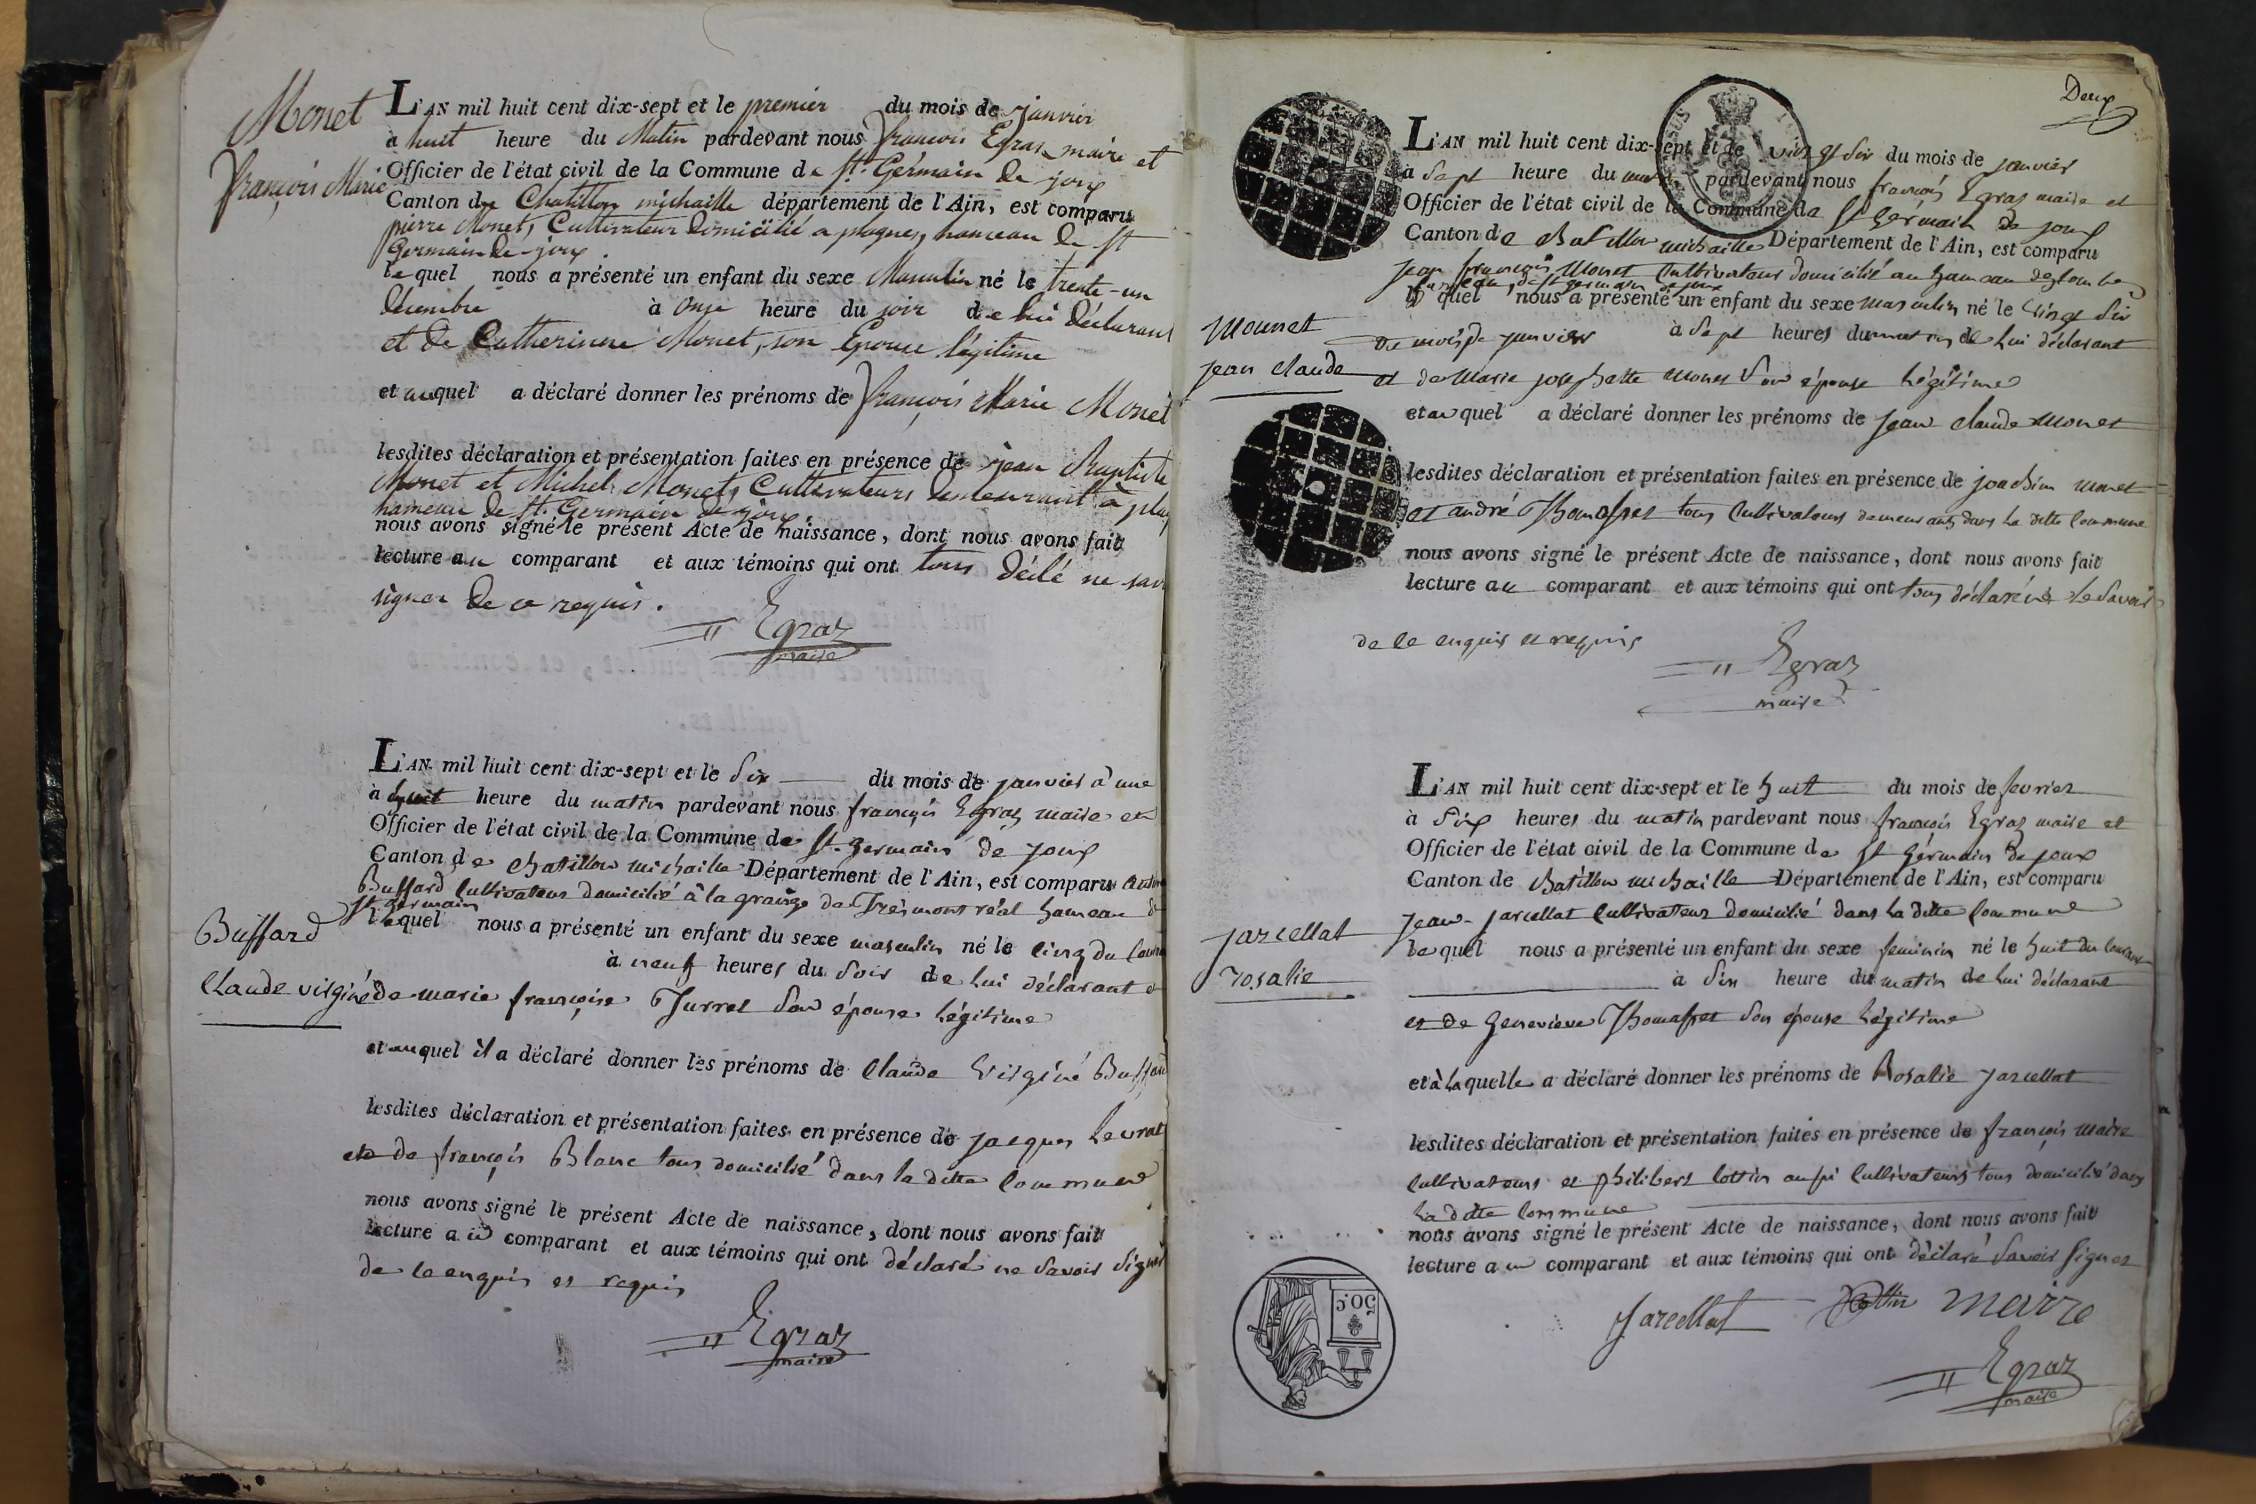 Monet
françois Marie
L'AN mil huit cent dix-sept et le premier du mois de janvier
à huit heure du Matin pardevant nous françois Egraz maire et
Officier de l'état civil de la Commune de St. Germain de joux
Canton de Chatillon michaille département de l'Ain, est comparu
pierre Monet, Cultivateur domicilié a plagnes, hameau de St
Germain de joux.
lequel nous a présenté un enfant du sexe Masculin né le trente-un
décembre à onze heure du soir de lui déclarant
et de Catherinne Monet, son Epouse légitime
et auquel a déclaré donner les prénoms de françois Marie Monet
lesdites déclaration et présentation faites en présence de jean Baptiste
Monet et Michel Monet, Cultivateurs demeurant à plag
hameau de St. Germain de joux.
nous avons signé le présent Acte de naissance, dont nous avons fait
lecture au comparant et aux témoins qui ont tous déclé ne savoi
signer de ce requis.
Egraz
maire
Buffard
Claude virginé
L'AN mil huit cent dix-sept et le six du mois de janvier à une
à huit heure du matin pardevant nous françois Egraz maire et
Officier de l'état civil de la Commune de St. germain de joux
Canton de chatillon michaille Département de l'Ain, est comparu
Buffard Cultivateur domicilié à la grange de Trésmontréal hameau de
St germain
lequel nous a présenté un enfant du sexe masculin né le cinq du coura
à neuf heures du soir de lui déclarant et
de marie françoise Jurret son épouse légitime
et auquel il a déclaré donner les prénoms de Claude virginé Buffard
lesdites déclaration et présentation faites en présence de jacques Levrat
et de françois Blanc tous domicilié dans la ditte Commune
nous avons signé le présent Acte de naissance, dont nous avons fait
lecture au comparant et aux témoins qui ont déclaré ne savoir signer
de ce enquis et requis
Egraz
maire
Deux
Mounet
jean claude
L'AN mil huit cent dix-sept et le vingt six du mois de janvier
à sept heure du matin pardevant nous françois Egraz maire et
Officier de l'état civil de la Commune de St germain de joux
Canton de chatillon michaille Département de l'Ain, est comparu
jean françois Monet Cultivateur domicilié au hameau des
hameau de St germain de joux
lequel nous a présenté un enfant du sexe masculin né le vingt six
du mois de janvier à sept heures du matin de lui déclarant
et de Marie josephatte Monet son épouse légitime
et au quel a déclaré donner les prénoms de jean claude Monet
lesdites déclaration et présentation faites en présence de joachim Monet
et andré Thomasset tous Cultivateurs demeurants dans la ditte Commune
nous avons signé le présent Acte de naissance, dont nous avons fait
lecture au comparant et aux témoins qui ont tous déclaré ne le savoir
de ce enquis et requis
Egraz
maire
jarcellat
rosalie
L'AN mil huit cent dix-sept et le huit du mois de fevrier
à six heures du matin pardevant nous françois Egraz maire et
Officier de l'état civil de la Commune de St germain de joux
Canton de chatillon michaille Département de l'Ain, est comparu
jean jarcellat Cultivateur domicilié dans la ditte Commune
le quel nous a présenté un enfant du sexe feminin né le huit du courant
à six heure du matin de lui déclarant
et de genevieve Thomasset son épouse légitime
et à laquelle a déclaré donner les prénoms de Rosalie jarcellat
lesdites déclaration et présentation faites en présence de françois maire
Cultivateurs et philibert Cottin aussi Cultivateurs tous domicilié dans
la ditte Commune
nous avons signé le présent Acte de naissance, dont nous avons fait
lecture au comparant et aux témoins qui ont déclaré savoir signer
50 c.
Jarcellat Cottin mairre
Egraz
maire